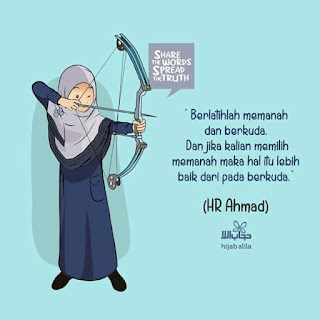 SHARE
THE WORDS
SPREAD
THE TRUTH
" Berlatihlah memanah
dan berkuda.
Dan jika kalian memilih
memanah maka hal itu lebih
baik dari pada berkuda."
(HR Ahmad)
hijab alila